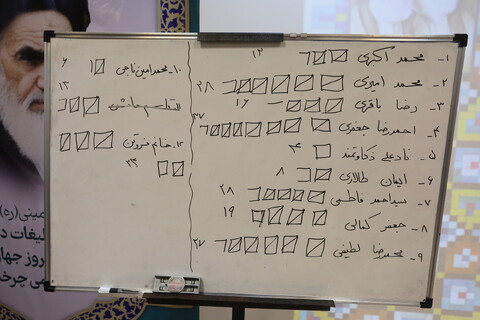 ۱- محمد اکبری ۱۲
۲- محمد امیری ۲۸
۳- رضا باقری ۱۶
۴- احمدرضا جعفری ۳۷
۵- نادعلی ذکاوتمند ۴
۶- ایمان طلاری ۸
۷- سیداحمد فاطمی ۲۸
۸- جعفر کمالی ۱۹
۹- محمدرضا لطیفی ۲۷
۱۰- محمدامین ناجی ۶
۱۳
۱۲- خانم فروتن
۲۳
مینی(ره)
لیغات د
روز چهار
ی چرخد